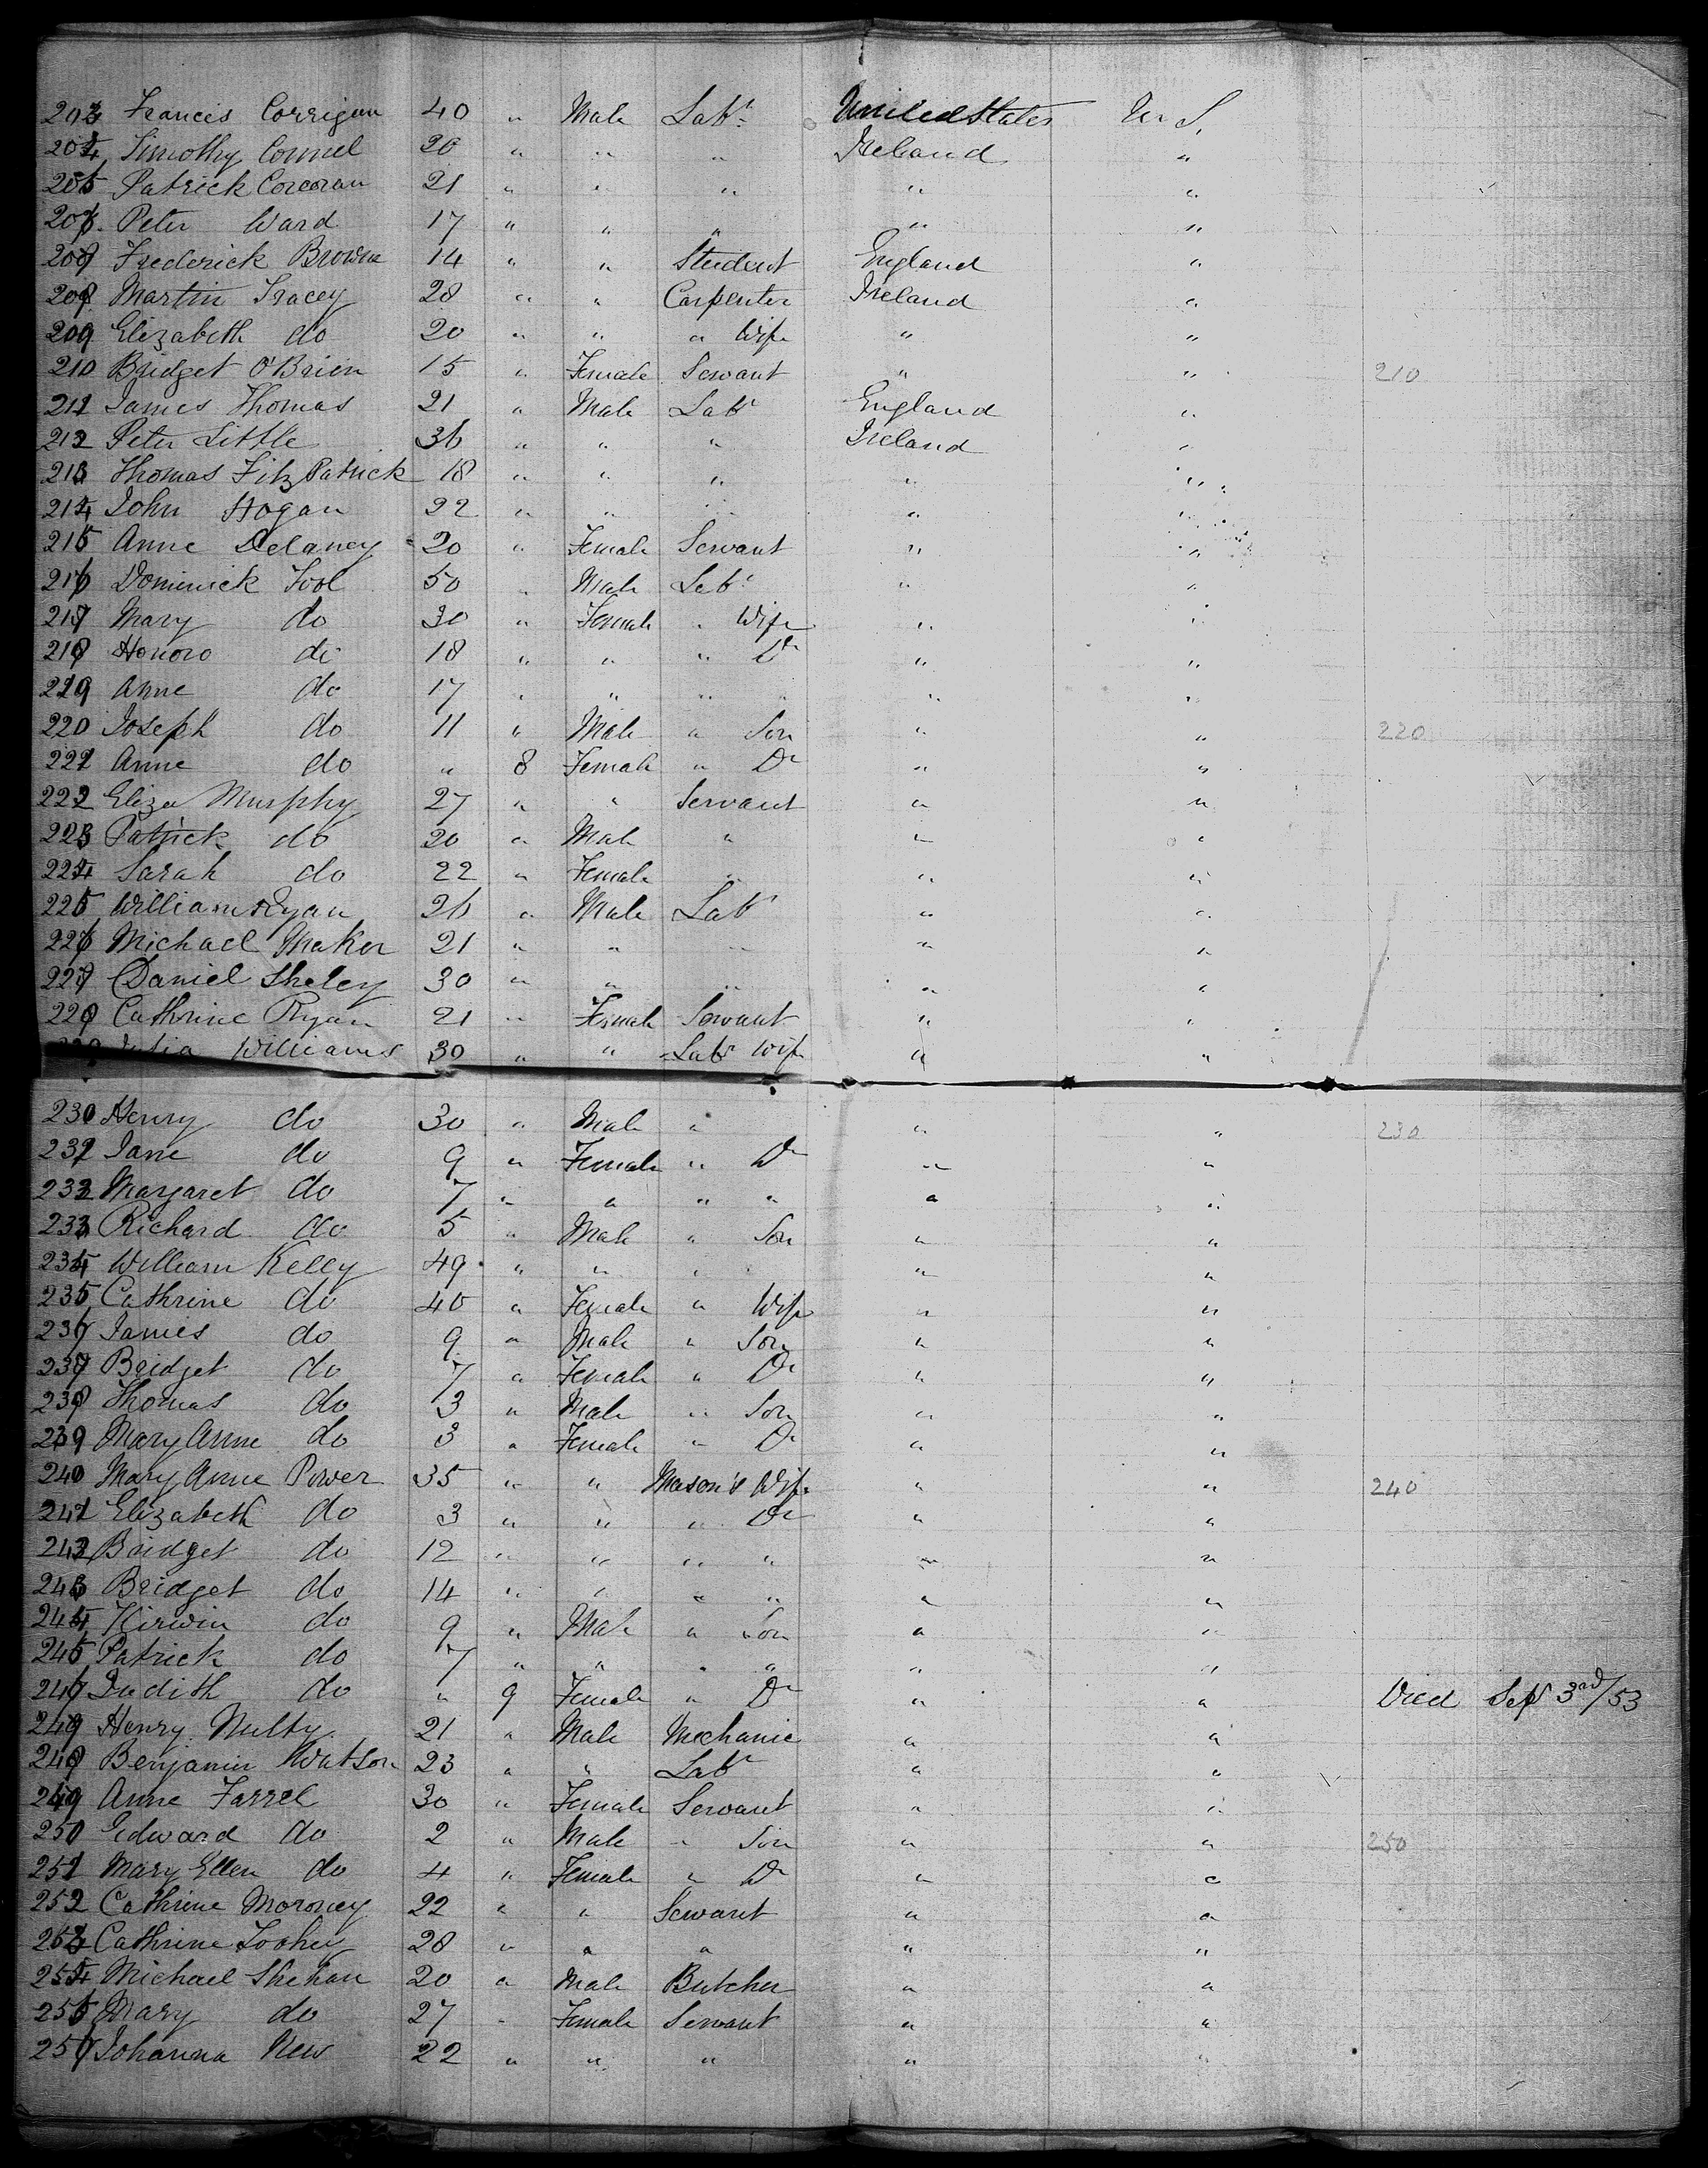 203 Francis Corrigan 40 " Male Labr. United States U. S.
204 Timothy Connel 20 " " " Ireland "
205 Patrick Corcoran 21 " " " " "
206. Peter Ward 17 " " " " "
207 Frederick Browne 14 " " Student England "
208 Martin Tracey 28 " " Carpenter Ireland "
209 Elizabeth do 20 " " " Wife " "
210 Bridget O'Brien 15 " Female Servant " " 210
211 James Thomas 21 " Male Labr England "
212 Peter Little 36 " " " Ireland "
213 Thomas FitzPatrick 18 " " " " "
214 John Hogan 22 " " " " "
215 Anne Delaney 20 " Female Servant " "
216 Dominick Tool 50 " Male Labr " "
217 Mary do 30 " Female " Wife " "
218 Honoro do 18 " " " Dr " "
219 Anne do 17 " " " " " "
220 Joseph do 11 " Male " Son " " 220
221 Anne do " 8 Female " Dr " "
222 Eliza Murphy 27 " " Servant " "
223 Patrick do 20 " Male " " "
224 Sarah do 22 " Female " " "
225 William Ryan 26 " Male Labr " "
226 Michael Maker 21 " " " " "
227 Daniel Sheley 30 " " " " "
228 Cathrine Ryan 21 " Female Servant " "
229 Julia Williams 30 " " Labr Wife " "
230 Henry do 30 " Male " " " 230
231 Jane do 9 " Female " Dr " "
232 Margaret do 7 " " " " " "
233 Richard do 5 " Male " Son " "
234 William Kelly 49 " " " " "
235 Cathrine do 40 " Female " Wife " "
236 James do 9 " Male " Son " "
237 Bridget do 7 " Female " Dr " "
238 Thomas do 3 " Male " Son " "
239 Mary Anne do 3 " Female " Dr " "
240 Mary Anne Power 35 " " Mason's Wife " " 240
241 Elizabeth do 3 " " " Dr " "
242 Bridget do 12 " " " " " "
243 Bridget do 14 " " " " " "
244 Kirwin do 9 " Male " Son " "
245 Patrick do 7 " " " " " "
246 Judith do " 9 Female " Dr " " Died Sept 3rd/53
247 Henry Nulty 21 " Male Mechanic " "
248 Benjamin Watson 23 " " Labr " "
249 Anne Farrel 30 " Female Servant " "
250 Edward do 2 " Male " Son " " 250
251 Mary Ellen do 4 " Female " Dr " "
252 Cathrine Moroney 22 " " Servant " "
253 Cathrine Toohey 28 " " " " "
254 Michael Shehan 20 " Male Butcher " "
255 Mary do 27 " Female Servant " "
256 Johanna New 22 " " " " "